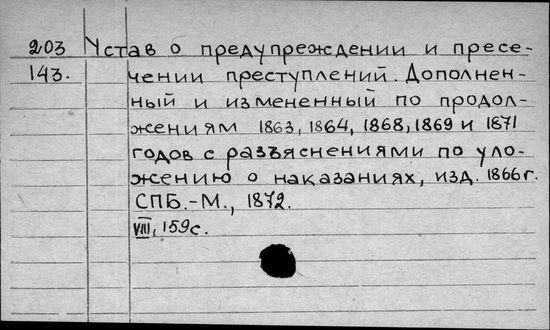 203 Устав о предупреждении и пресе-
143. чении преступлений. Дополнен-
ный и измененный по продол-
жениям 1863, 1864, 1868, 1869 и 1871
годов с разъяснениями по уло-
жению о наказаниях, изд. 1866 г.
СПБ.-М., 1872.
VIII, 159с.